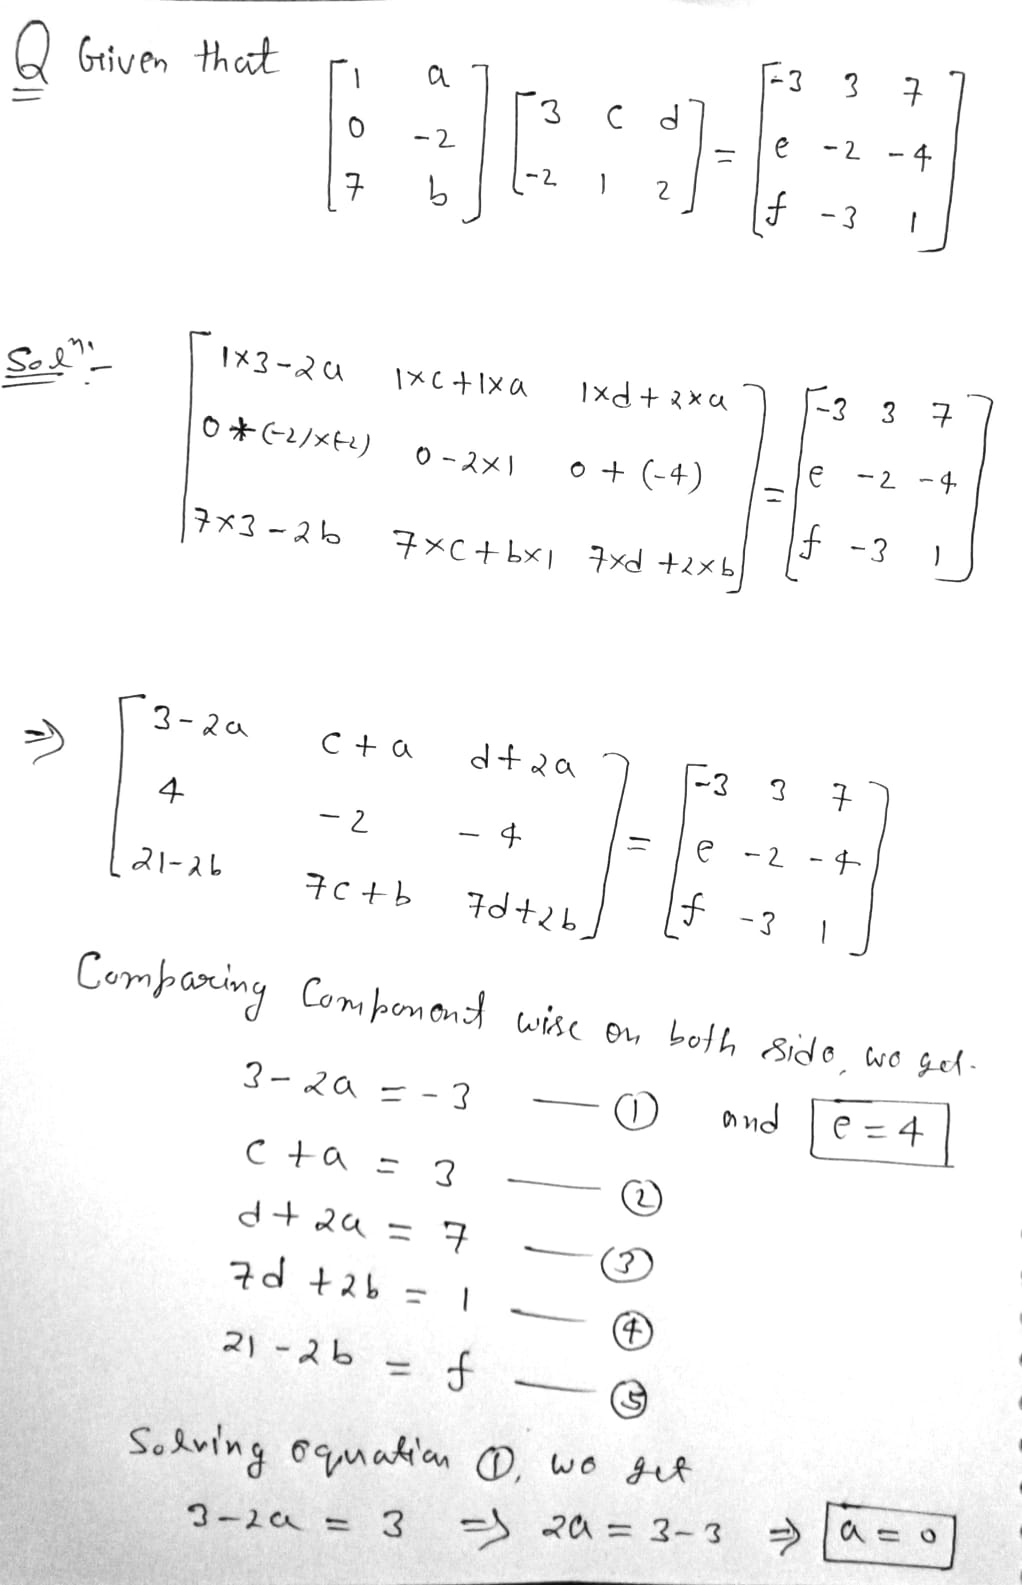 Q Given that [1 a; 0 -2; 7 b] [3 c d; -2 1 2] = [-3 3 7; e -2 -4; f -3 1]
Solⁿ:- [1×3-2a 1×c+1×a 1×d+2×a; 0+(-2)×(-2) 0-2×1 0+(-4); 7×3-2b 7×c+b×1 7×d+2×b] = [-3 3 7; e -2 -4; f -3 1]
⇒ [3-2a c+a d+2a; 4 -2 -4; 21-2b 7c+b 7d+2b] = [-3 3 7; e -2 -4; f -3 1]
Comparing Component wise on both side, we get.
3-2a = -3 — ① and e = 4
c+a = 3 — ②
d+2a = 7 — ③
7d+2b = 1 — ④
21-2b = f — ⑤
Solving equation ①, we get
3-2a = 3 ⇒ 2a = 3-3 ⇒ a = 0